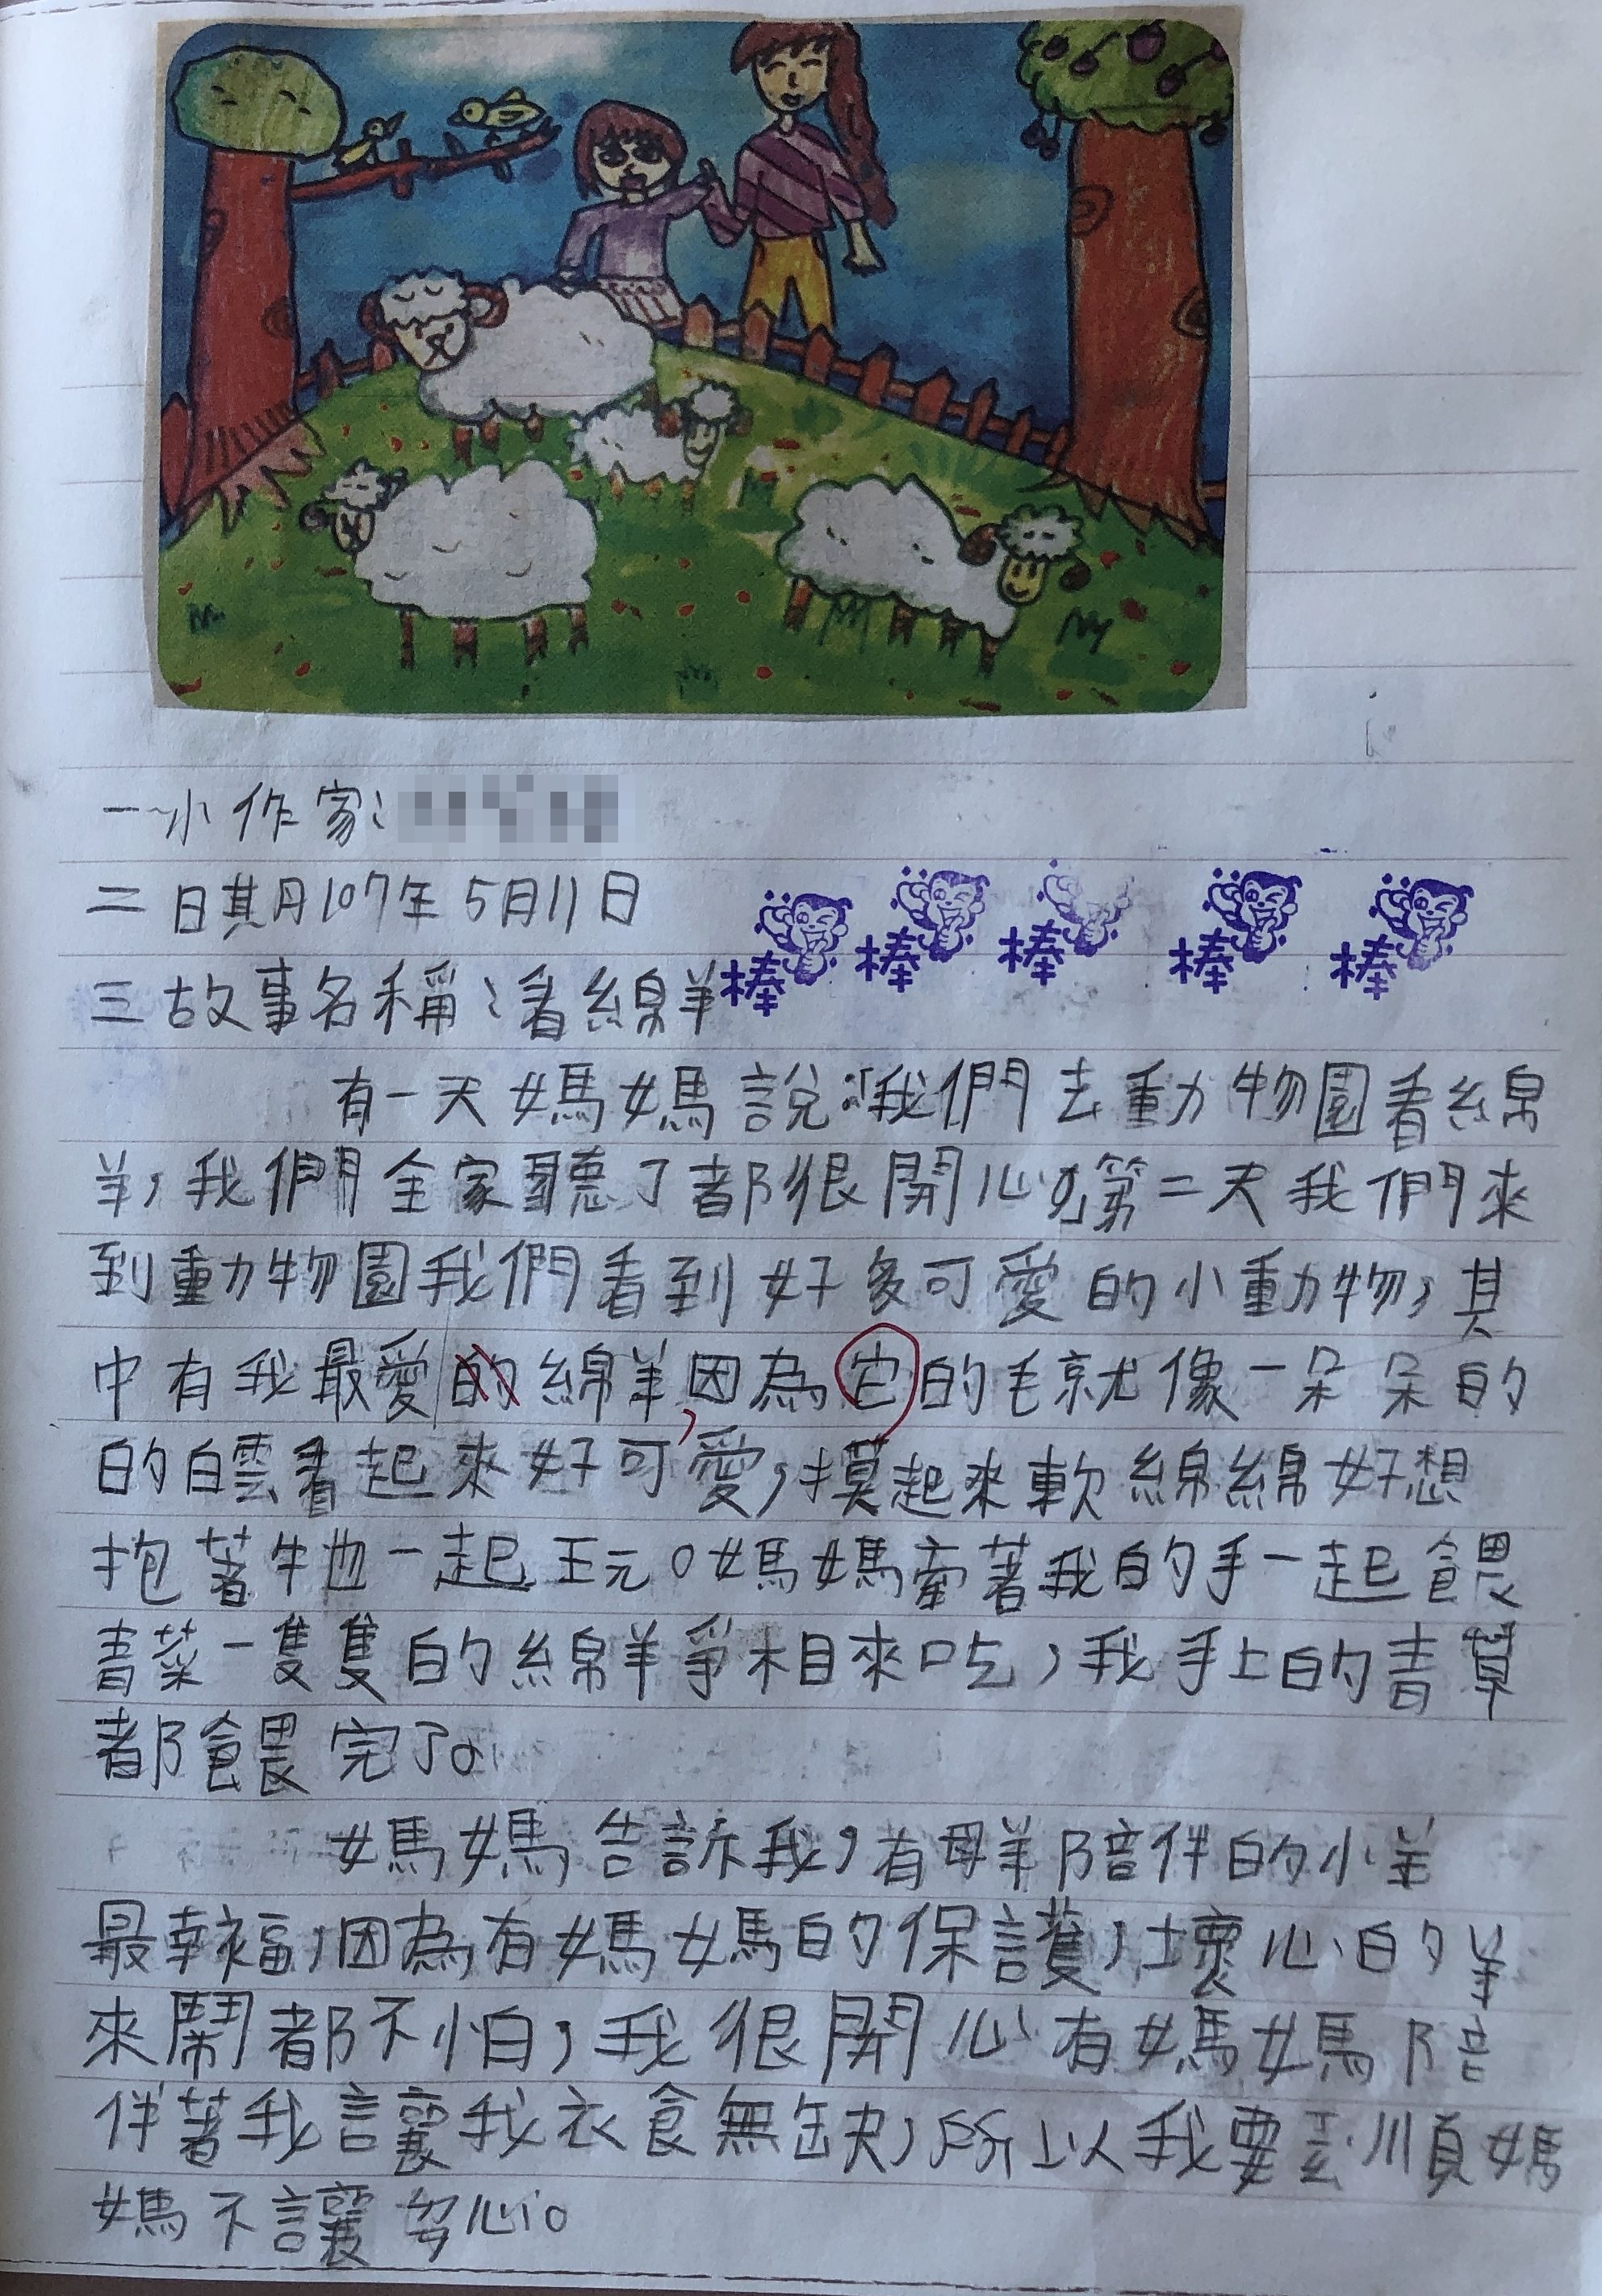 一、小作家:
二 日期107年5月11日
棒 棒 棒 棒 棒
三 故事名稱:看綿羊
有一天媽媽說:「我們去動物園看綿
羊,我們全家聽了都很開心。」第二天我們來
到動物園我們看到好多可愛的小動物,其
中有我最愛的綿羊,因為它的毛就像一朵朵的
的白雲看起來好可愛,摸起來軟綿綿好想
抱著牠一起玩。媽媽牽著我的手一起餵
青菜一隻隻的綿羊爭相來吃,我手上的青草
都餵完了。
媽媽告訴我,有母羊陪伴的小羊
最幸福,因為有媽媽的保護,壞心的羊
來鬧都不怕,我很開心有媽媽陪
伴著我讓我衣食無缺,所以我要孝順媽
媽不讓 心。